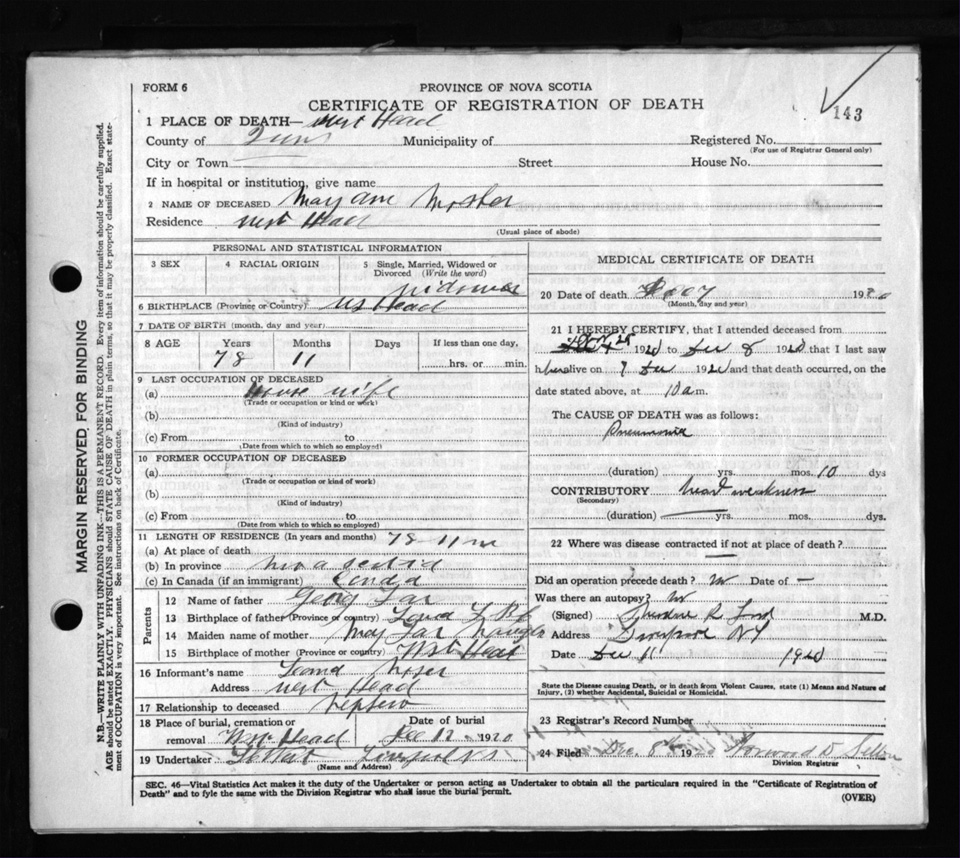 FORM 6
PROVINCE OF NOVA SCOTIA
CERTIFICATE OF REGISTRATION OF DEATH
143
1 PLACE OF DEATH— West Head
County of Municipality of Registered No.
(For use of Registrar General only)
City or Town Street House No.
If in hospital or institution, give name
2 NAME OF DECEASED Mary Ann
Residence West Head
(Usual place of abode)
PERSONAL AND STATISTICAL INFORMATION
3 SEX 4 RACIAL ORIGIN 5 Single, Married, Widowed or Divorced (Write the word)
6 BIRTHPLACE (Province or Country) Head
7 DATE OF BIRTH (month, day and year)
8 AGE Years Months Days If less than one day,
78 11 hrs. or min.
9 LAST OCCUPATION OF DECEASED
(a) House wife
(Trade or occupation or kind or work)
(b)
(Kind of industry)
(c) From to
(Date from which to which so employed)
10 FORMER OCCUPATION OF DECEASED
(a)
(Trade or occupation or kind of work)
(b)
(Kind of industry)
(c) From to
(Date from which to which so employed)
11 LENGTH OF RESIDENCE (In years and months) 78-11 m
(a) At place of death
(b) In province
(c) In Canada (if an immigrant)
Parents
12 Name of father
13 Birthplace of father (Province or country)
14 Maiden name of mother
15 Birthplace of mother (Province or country) West Head
16 Informant's name
Address West Head
17 Relationship to deceased
18 Place of burial, cremation or removal West Head Date of burial Dec 12 1920
19 Undertaker
(Name and Address)
MEDICAL CERTIFICATE OF DEATH
20 Date of death
(Month, day and year)
21 I HEREBY CERTIFY, that I attended deceased from
1920 to Dec 8 1920 that I last saw
h er alive on 7 Dec 1920 and that death occurred, on the
date stated above, at 10 a m.
The CAUSE OF DEATH was as follows:
Pneumonia
(duration) yrs. mos. 10 dys
CONTRIBUTORY heart weakness
(Secondary)
(duration) yrs. mos. dys.
22 Where was disease contracted if not at place of death?
Did an operation precede death? no Date of —
Was there an autopsy? no
(Signed) R Ford M.D.
Address
Date Dec 11 1920
State the Disease causing Death, or in death from Violent Causes, state (1) Means and Nature of Injury, (2) whether Accidental, Suicidal or Homicidal.
23 Registrar's Record Number
24 Filed Dec 8th 1920
Division Registrar
SEC. 46—Vital Statistics Act makes it the duty of the Undertaker or person acting as Undertaker to obtain all the particulars required in the "Certificate of Registration of
Death" and to fyle the same with the Division Registrar who shall issue the burial permit.
(OVER)
MARGIN RESERVED FOR BINDING
N.B.—WRITE PLAINLY WITH UNFADING INK—THIS IS A PERMANENT RECORD. Every item of information should be carefully supplied.
AGE should be stated EXACTLY. PHYSICIANS should STATE CAUSE OF DEATH in plain terms, so that it may be properly classified. Exact statement of OCCUPATION is very important. See instructions on back of Certificate.